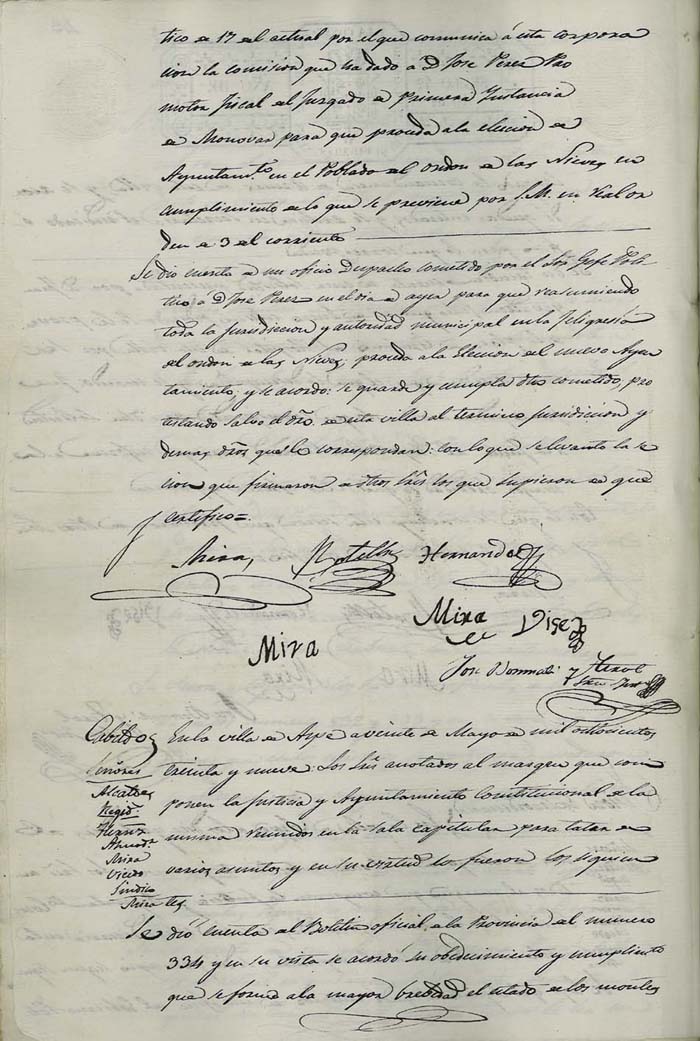 tico de 17 del actual por el que comunica á esta corpora
cion la comision que ha dado a D. Jose Perez Pro
motor Fiscal del Juzgado de Primera Instancia
de Monovar para que proceda ala eleccion de
Ayuntamto en el Poblado del Ondon de las Nieves en
cumplimiento de lo que se previene por S.M. en Real or
den de 3 del corriente
Se dio cuenta de un oficio Despacho cometido por el Sor Gefe Poli
tico á D. Jose Perez en el dia de ayer para que reasumiendo
toda la Jurisdiccion y autoridad municipal en la feligresía
del ondon de las Nieves, proceda ala Eleccion del nuevo Ayun
tamiento, y se acordo: se guarde y cumpla dho cometido, pro
testando salvo el dro. de esta villa al termino Jurisdiccion y
demas dros que le correspondan: con lo que se levanto la se
cion que firmaron de dhos Sres los que supieron de que
certifico=
Mira, Botella Hernandez
Mira Disez
Mira
Jose
Cabildo En la villa de Aspe a veinte de Mayo de mil ochocientos
Señores treinta y nueve: Los Sres anotados al margen que com
Alcaldes
Regid. ponen la Justicia y Ayuntamiento Constitucional de la
misma reunidos en la sala capitular para tatar de
Mira
Uicedo varios asuntos y en su virtud lo fueron los siguien
Sindico
Mira tes
Se dió cuenta del Boletin oficial de la Provincia del numero
334 y en su vista se acordó su obedecimiento y cumplimto
que se forme ala mayor brevedad el estado de los mozos